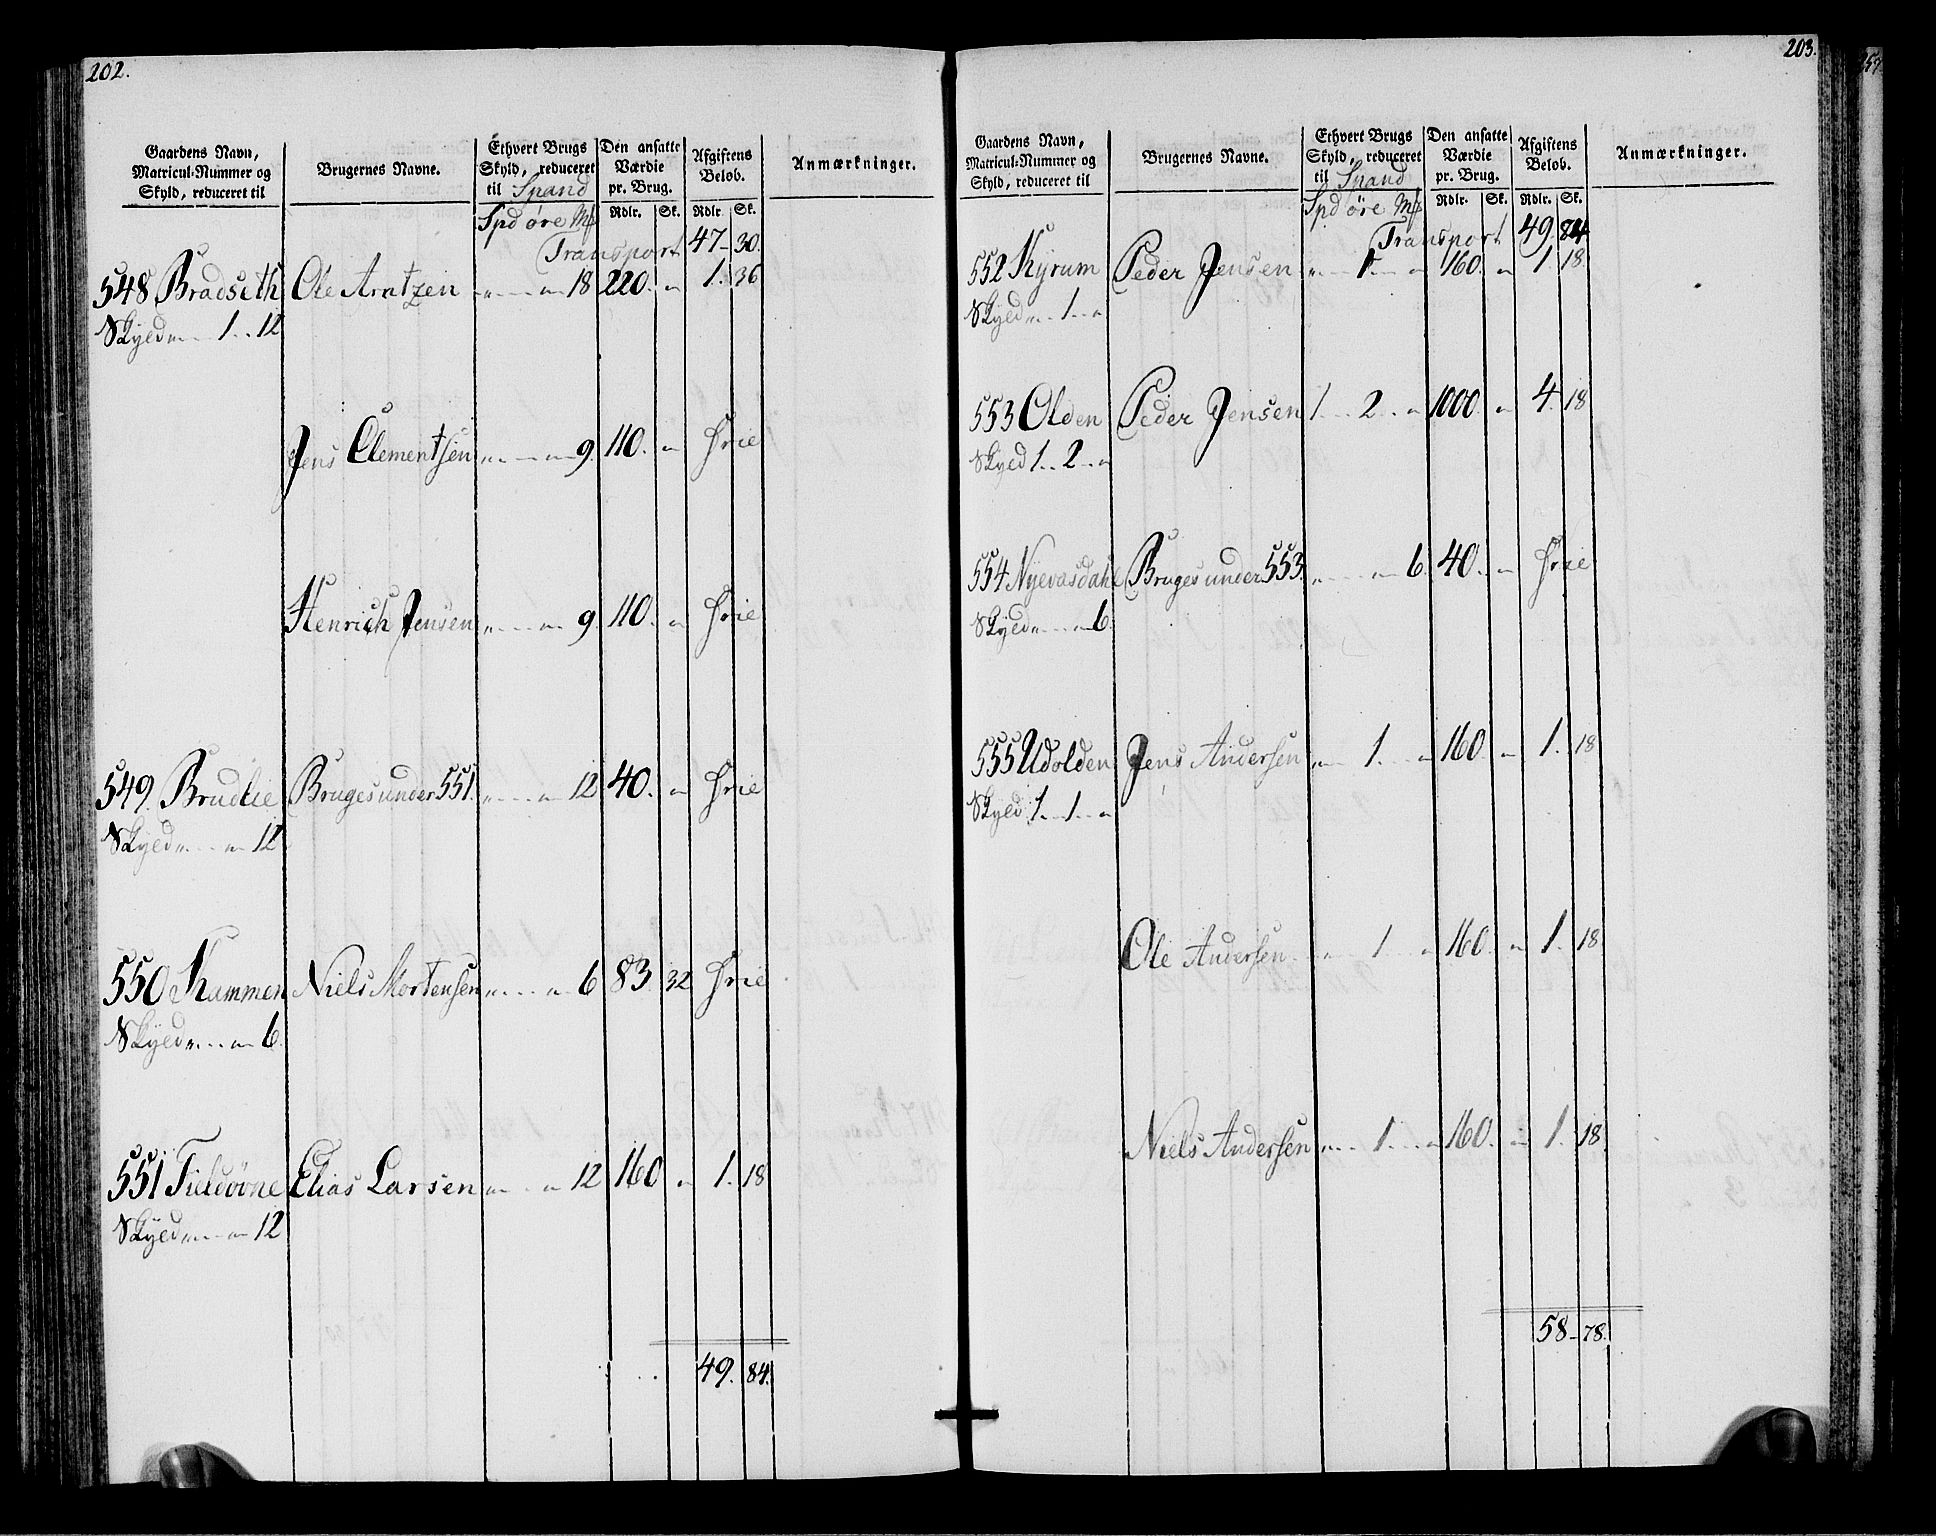 202.
Gaardens Navn, Matricul-Nummer og Skyld, reduceret til | Brugernes Navne. | Ethvert Brugs Skyld, reduceret til Spand | Den ansatte Værdie pr. Brug. | Afgiftens Beløb. | Anmærkninger.
Spd øre Mf | Rdlr. | Sk. | Rdlr. | Sk.
Transport 47 - 30.
548 Bradseth Ole Arntzen „ „ 18 220. „ 1. 36
Skyld „ 1 . . 12
Jens Clementsen „ „ 9. 110. „ Frie
Henrich Jensen „ „ 9 110. „ Frie
549. Brudlie Bruges under 551. „ „ 12 40. „ Frie
Skyld „ „ 12
550 Kammen Niels Mortensen „ „ 6 83 32 Frie
Skyld „ „ 6.
551 Fieldøvne Elias Larsen „ „ 12 160 „ 1. 18
Skyld „ „ 12
49. 84.
203.
Gaardens Navn, Matricul-Nummer og Skyld, reduceret til | Brugernes Navne. | Ethvert Brugs Skyld, reduceret til Spand | Den ansatte Værdie pr. Brug. | Afgiftens Beløb. | Anmærkninger.
Spd øre Mf | Rdlr. | Sk. | Rdlr. | Sk.
Transport 49. 84
552 Kyrum Peder Jensen „ 1 „ 160. „ 1. 18
Skyld „ 1 „
553 Olden Peder Jensen 1 2 „ 1000. „ 4. 18
Skyld 1 . . 2 „
554 Nyevasdahl Bruges under 553. „ „ 6. 40. „ Frie
Skyld „ „ 6.
555 Udolden Jens Andersen „ 1. „ 160 „ 1. 18
Skyld 1 . . 1 „
Ole Andersen „ 1 „ 160. „ 1. 18.
Niels Andersen „ 1 „ 160. „ 1. 18
58 - 78.